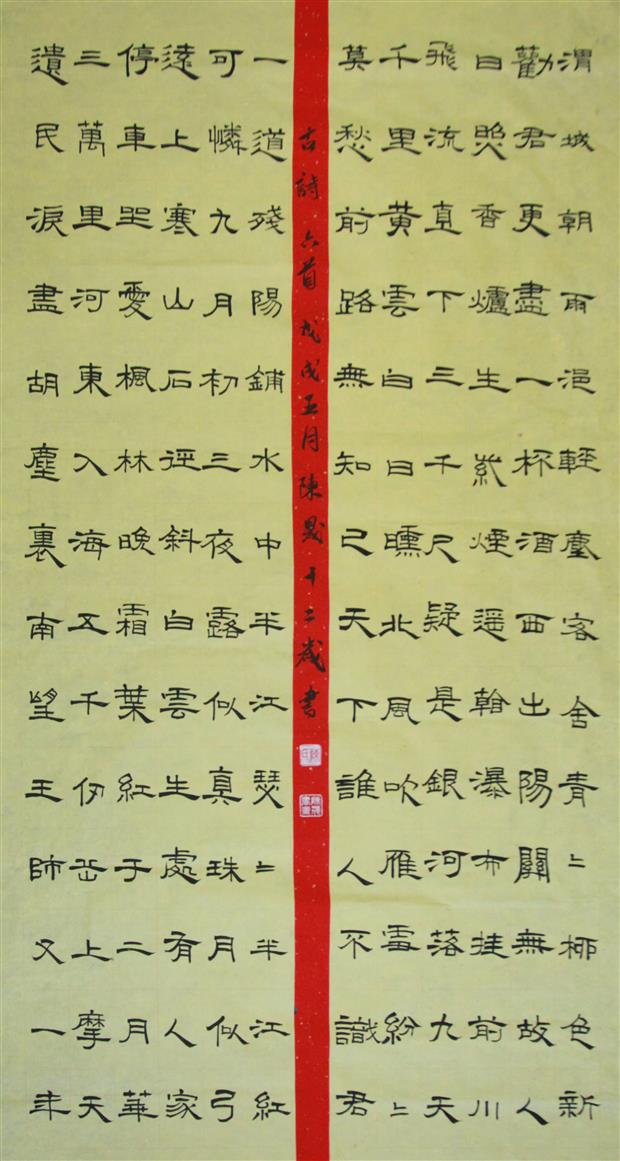 渭城朝雨浥輕塵客舍青〻柳色新
勸君更盡一杯酒西出陽關無故人
日照香爐生紫煙遥看瀑布挂前川
飛流直下三千尺疑是銀河落九天
千里黃雲白日曛北風吹雁雪紛〻
莫愁前路無知己天下誰人不識君
古詩六首戊戌五月陳晟十二歲書
一道殘陽鋪水中半江瑟〻半江紅
可憐九月初三夜露似真珠月似弓
遠上寒山石徑斜白雲生處有人家
停車坐愛楓林晚霜葉紅于二月華
三萬里河東入海五千仞岳上摩天
遺民淚盡胡塵裏南望王師又一年